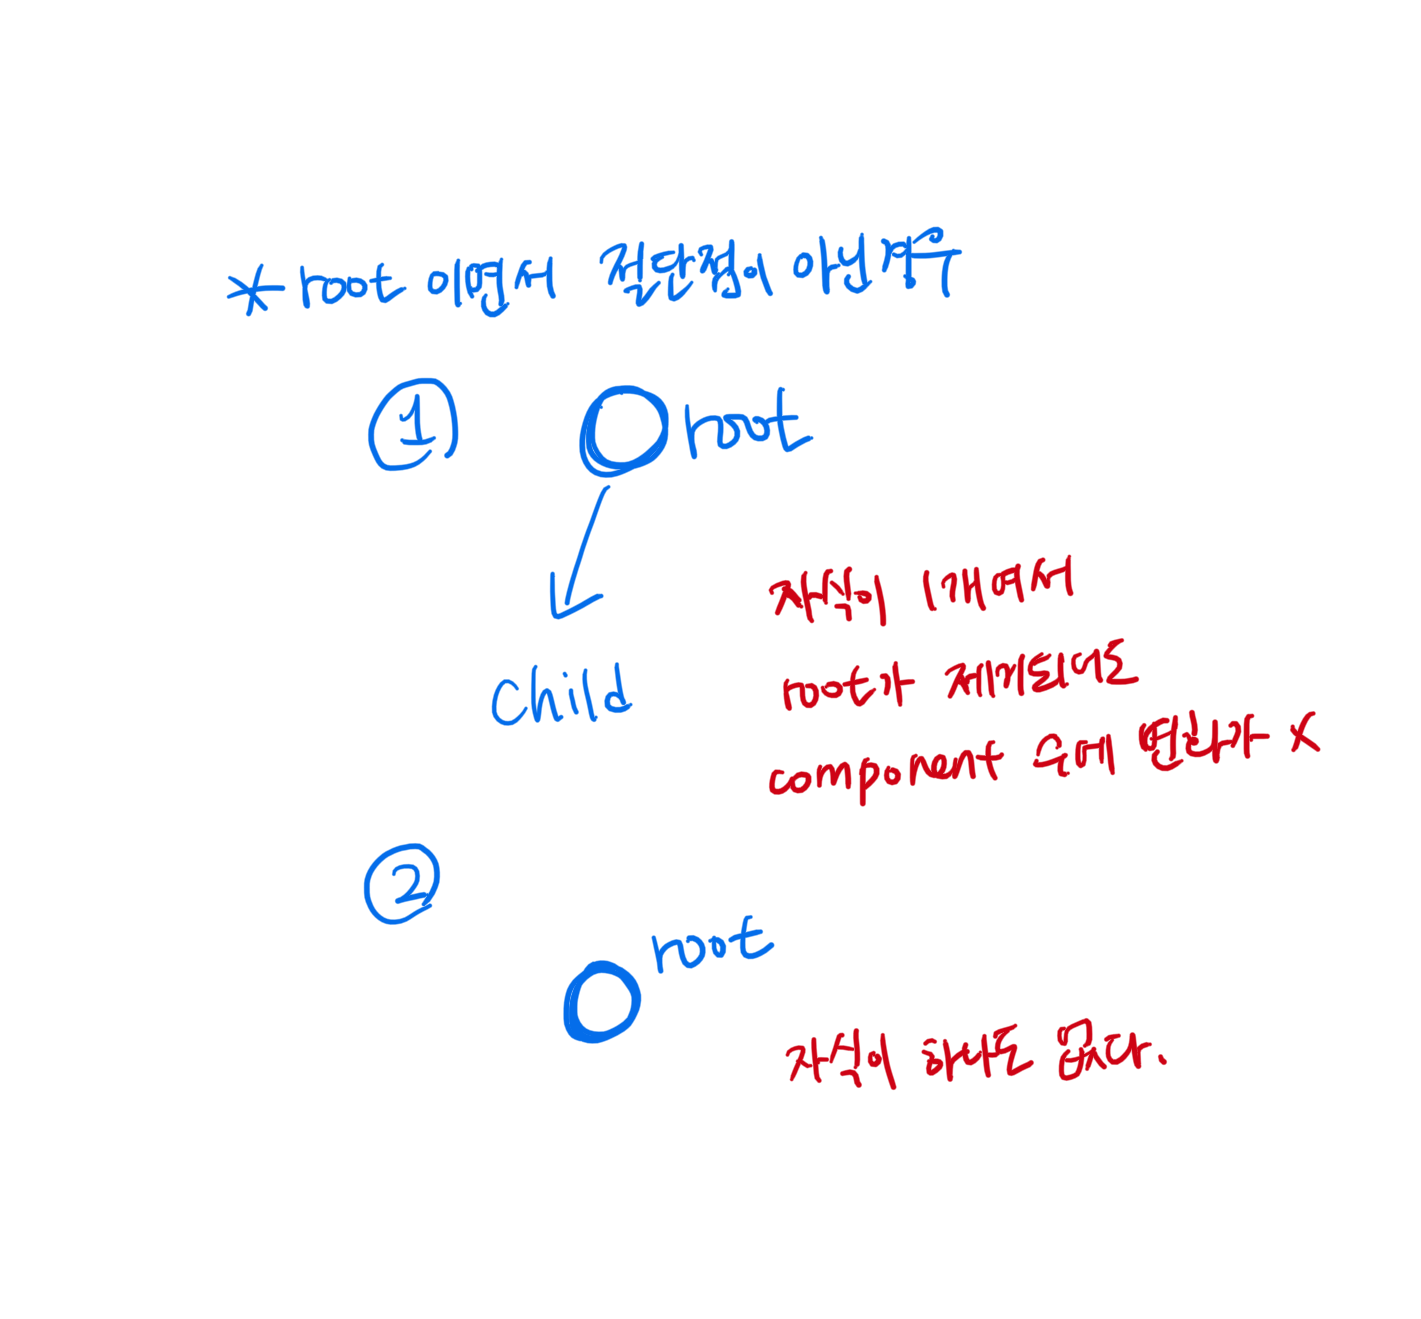 * root 이면서 절단점이 아닌경우
① root
child
자식이 1개여서
root가 제거되어도
component 수에 변화가 X
②
root
자식이 하나도 없다.